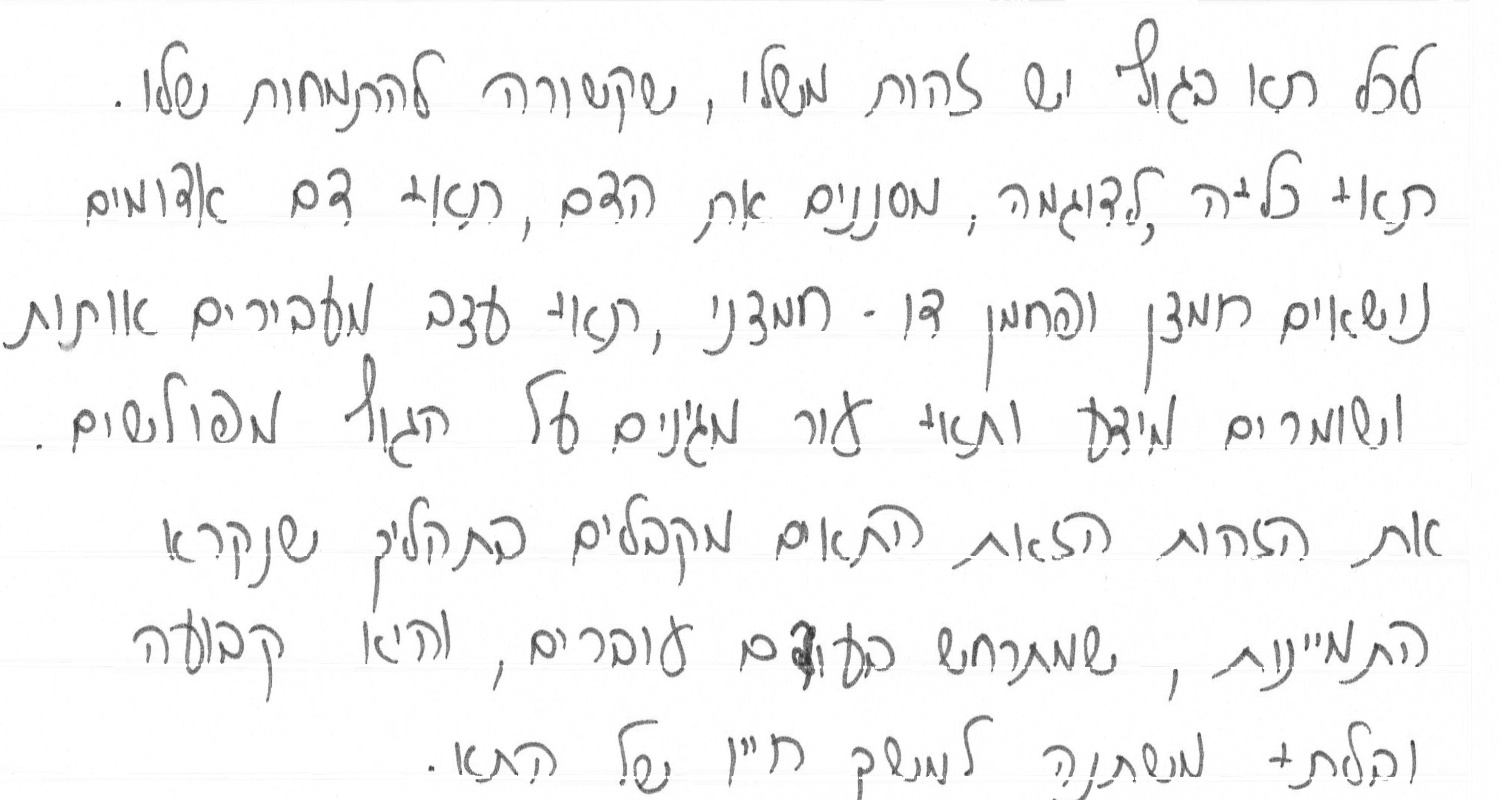 לכל תא בגוף יש זהות משלו, שקשורה להתמחות שלו.
תאי כליה, לדוגמה, מסננים את הדם, תאי דם אדומים
נושאים חמצן ופחמן דו - חמצני, תאי עצב מעבירים אותות
ושומרים מידע ותאי עור מגינים על הגוף מפולשים.
את הזהות הזאת התאים מקבלים בתהליך שנקרא
התמיינות, שמתרחש בעודם עוברים, והיא קבועה
ובלתי משתנה למשך חייו של התא.